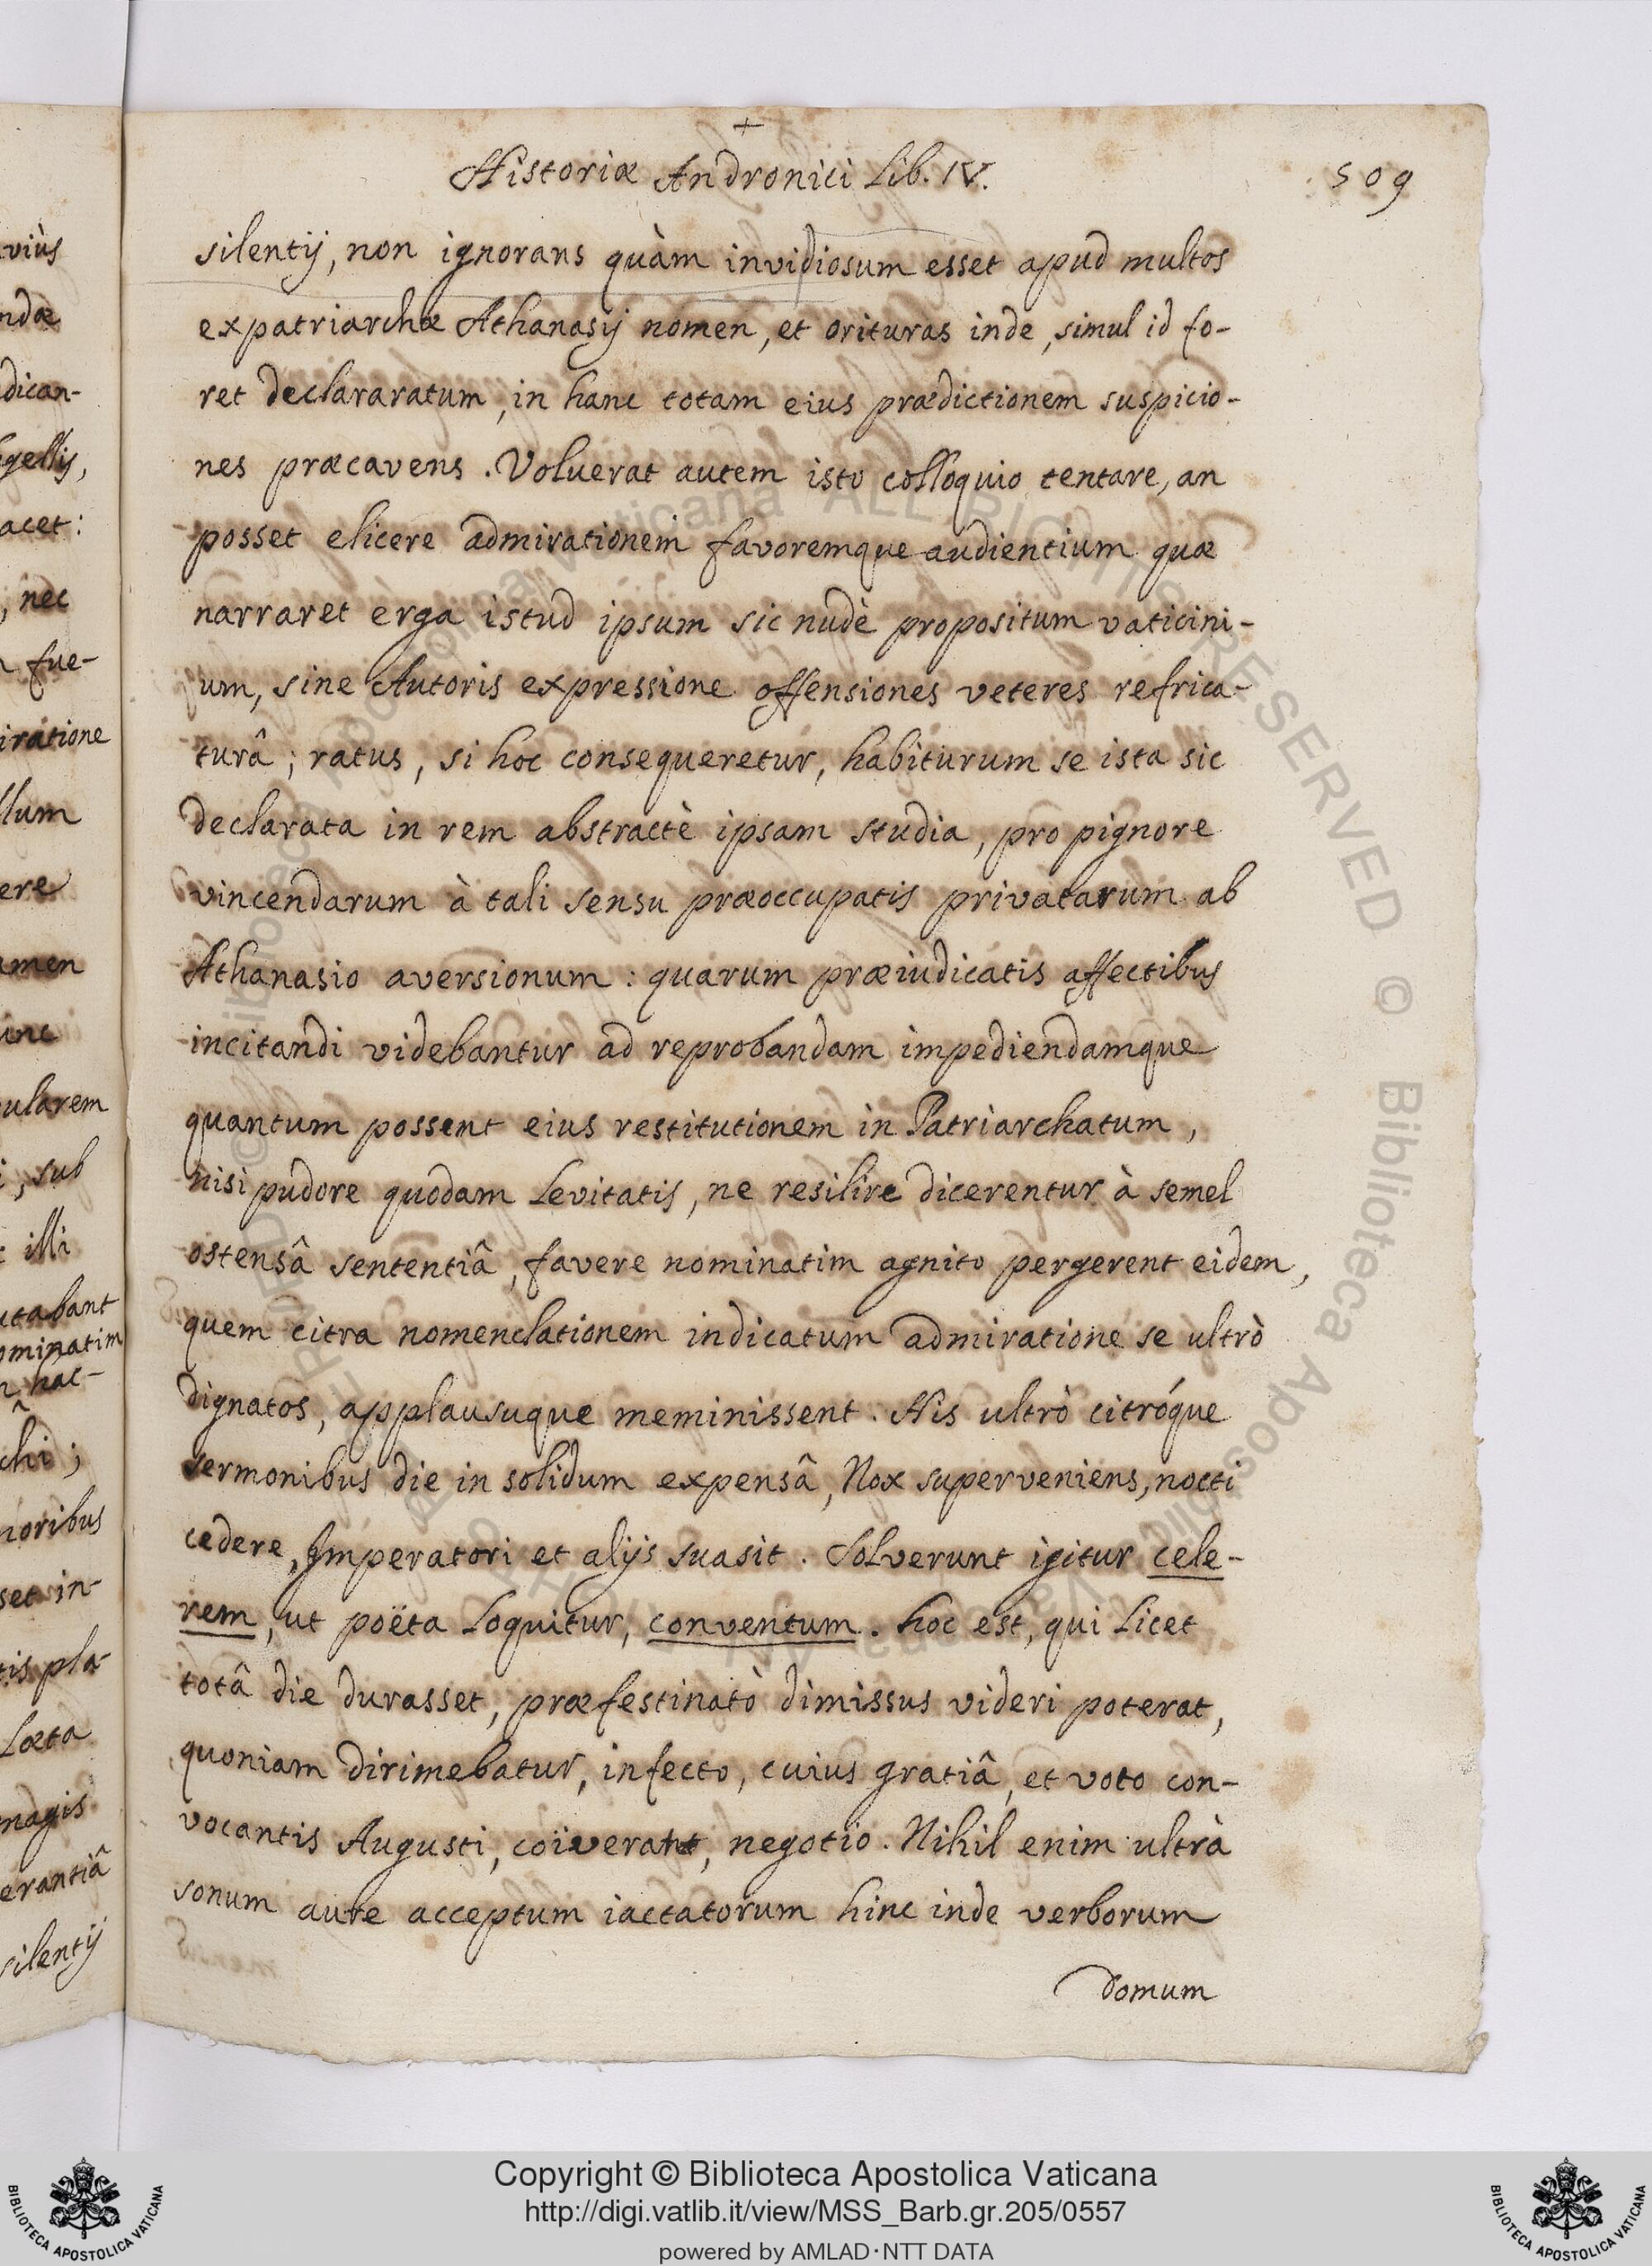 +
Historiæ Andronici Lib. IV.
509
silentij, non ignorans quàm invidiosum esset apud multos
expatriarchæ Athanasij nomen, et orituras inde, simul id fo-
ret declararatum, in hanc totam eius prædictionem suspicio-
nes præcavens. Voluerat autem isto colloquio tentare, an
posset elicere admirationem favoremque audientium quæ
narraret erga istud ipsum sic nudè propositum vaticini-
um, sine Autoris expressione offensiones veteres refrica-
turâ; ratus, si hoc consequeretur, habiturum se ista sic
declarata in rem abstractè ipsam studia, pro pignore
vincendarum à tali sensu præoccupatis privatarum ab
Athanasio aversionum: quarum præiudicatis affectibus
incitandi videbantur ad reprobandam impediendamque
quantum possent eius restitutionem in Patriarchatum,
nisi pudore quodam Levitatis, ne resilire dicerentur à semel
ostensâ sententiâ, favere nominatim agnito pergerent eidem,
quem citra nomenclationem indicatum admiratione se ultrò
dignatos, applausuque meminissent. His ultrò citróque
sermonibus die in solidum expensâ, Nox superveniens, nocti
cedere, Imperatori et alijs suasit. Solverunt igitur cele-
rem, ut poëta Loquitur, conventum. hoc est, qui Licet
totâ die durasset, præfestinatò dimissus videri poterat,
quoniam dirimebatur, infecto, cuius gratiâ, et voto con-
vocantis Augusti, coïverant, negotio. Nihil enim ultrà
sonum aure acceptum iactatorum hinc inde verborum
domum
viùs
ndæ
dican-
gellis,
acet:
, nec
fue-
iratione
llum
ere
amen
inc
ularem
i, sub
illi
utabant
ominatim
hac-
chi;
noribus
set in-
tis pla-
Læta
magis
erantiâ
silentij
© Biblioteca Apostolica Vaticana ALL RIGHTS RESERVED © Biblioteca Apostolica Vaticana
Copyright © Biblioteca Apostolica Vaticana
http://digi.vatlib.it/view/MSS_Barb.gr.205/0557
powered by AMLAD·NTT DATA
BIBLIOTECA APOSTOLICA VATICANA
BIBLIOTECA APOSTOLICA VATICANA